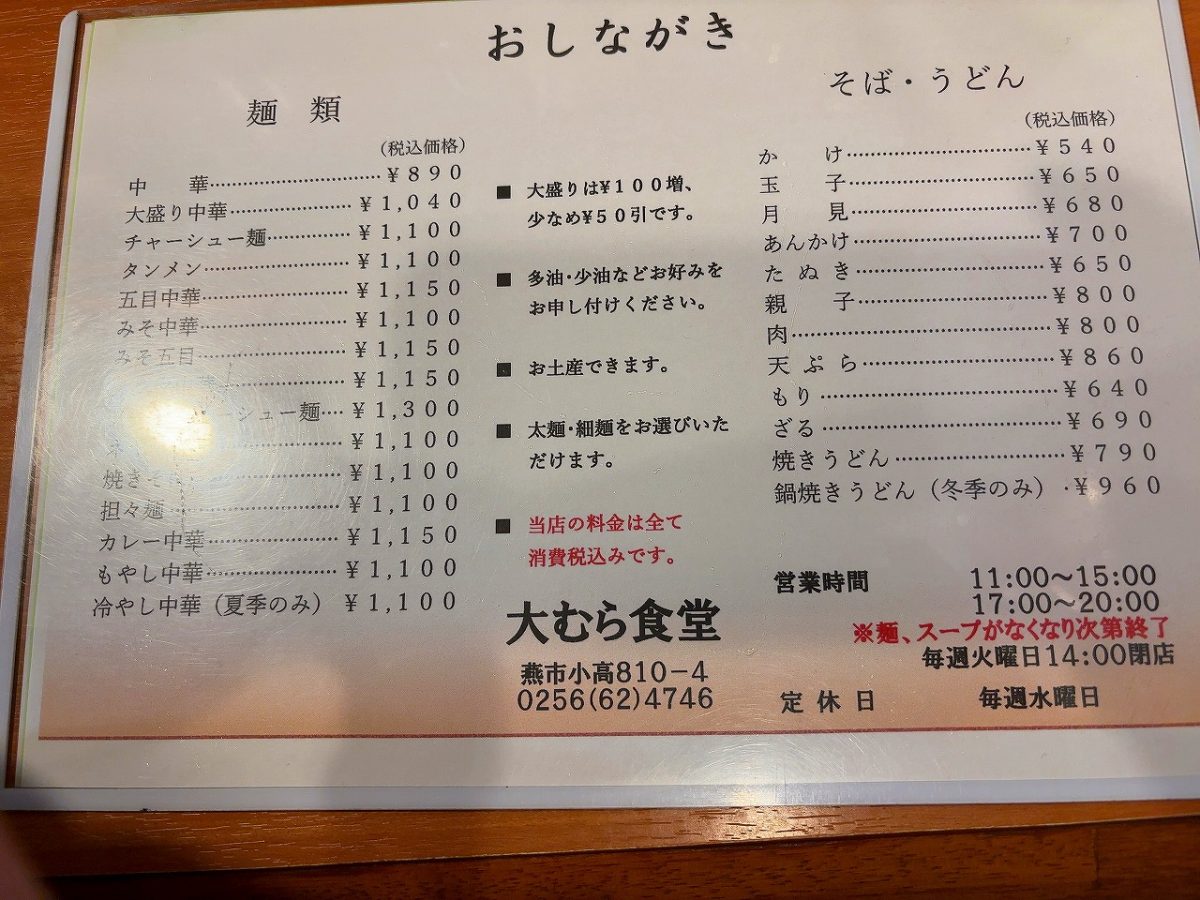 おしながき
麺 類
(税込価格)
中 華 ¥890
大盛り中華 ¥1,040
チャーシュー麺 ¥1,100
タンメン ¥1,100
五目中華 ¥1,150
みそ中華 ¥1,100
みそ五目 ¥1,150
¥1,150
ーシュー麺 ¥1,300
¥1,100
焼きそ ¥1,100
担々麺 ¥1,100
カレー中華 ¥1,150
もやし中華 ¥1,100
冷やし中華(夏季のみ) ¥1,100
■ 大盛りは¥100増、
少なめ¥50引です。
■ 多油・少油などお好みを
お申し付けください。
■ お土産できます。
■ 太麺・細麺をお選びいた
だけます。
■ 当店の料金は全て
消費税込みです。
大むら食堂
燕市小高810-4
0256(62)4746
そば・うどん
(税込価格)
か け ¥540
玉 子 ¥650
月 見 ¥680
あんかけ ¥700
たぬき ¥650
親 子 ¥800
肉 ¥800
天ぷら ¥860
もり ¥640
ざる ¥690
焼きうどん ¥790
鍋焼きうどん(冬季のみ) ¥960
営業時間 11:00~15:00
17:00~20:00
※麺、スープがなくなり次第終了
毎週火曜日14:00閉店
定休日 毎週水曜日